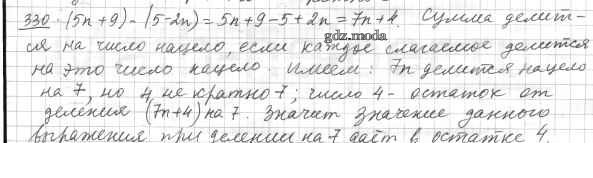 330. (5n+9) - (5-2n) = 5n+9-5+2n = 7n+4. Сумма делит-
ся на число нацело, если каждое слагаемое делится
gdz.moda
на это число нацело. Имеем: 7n делится нацело
на 7, но 4 не кратно 7; число 4 - остаток от
деления (7n+4) на 7. Значит значение данного
выражения при делении на 7 даёт в остатке 4.